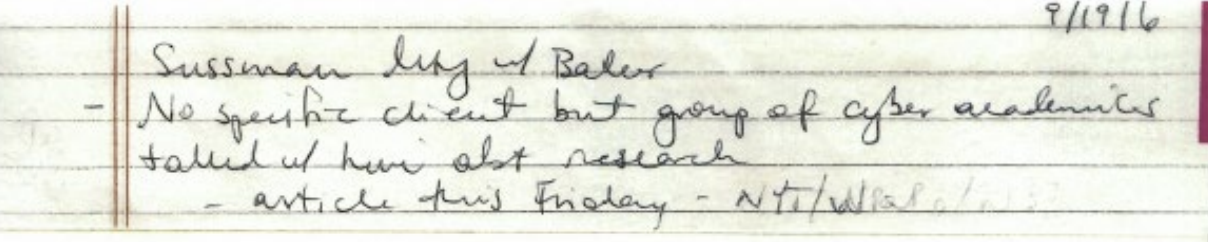 9/19/16
Sussman mtg w/ Baker
- No specific client but group of cyber academics
talked w/ him abt research
- article this Friday - NYT/WaPo/